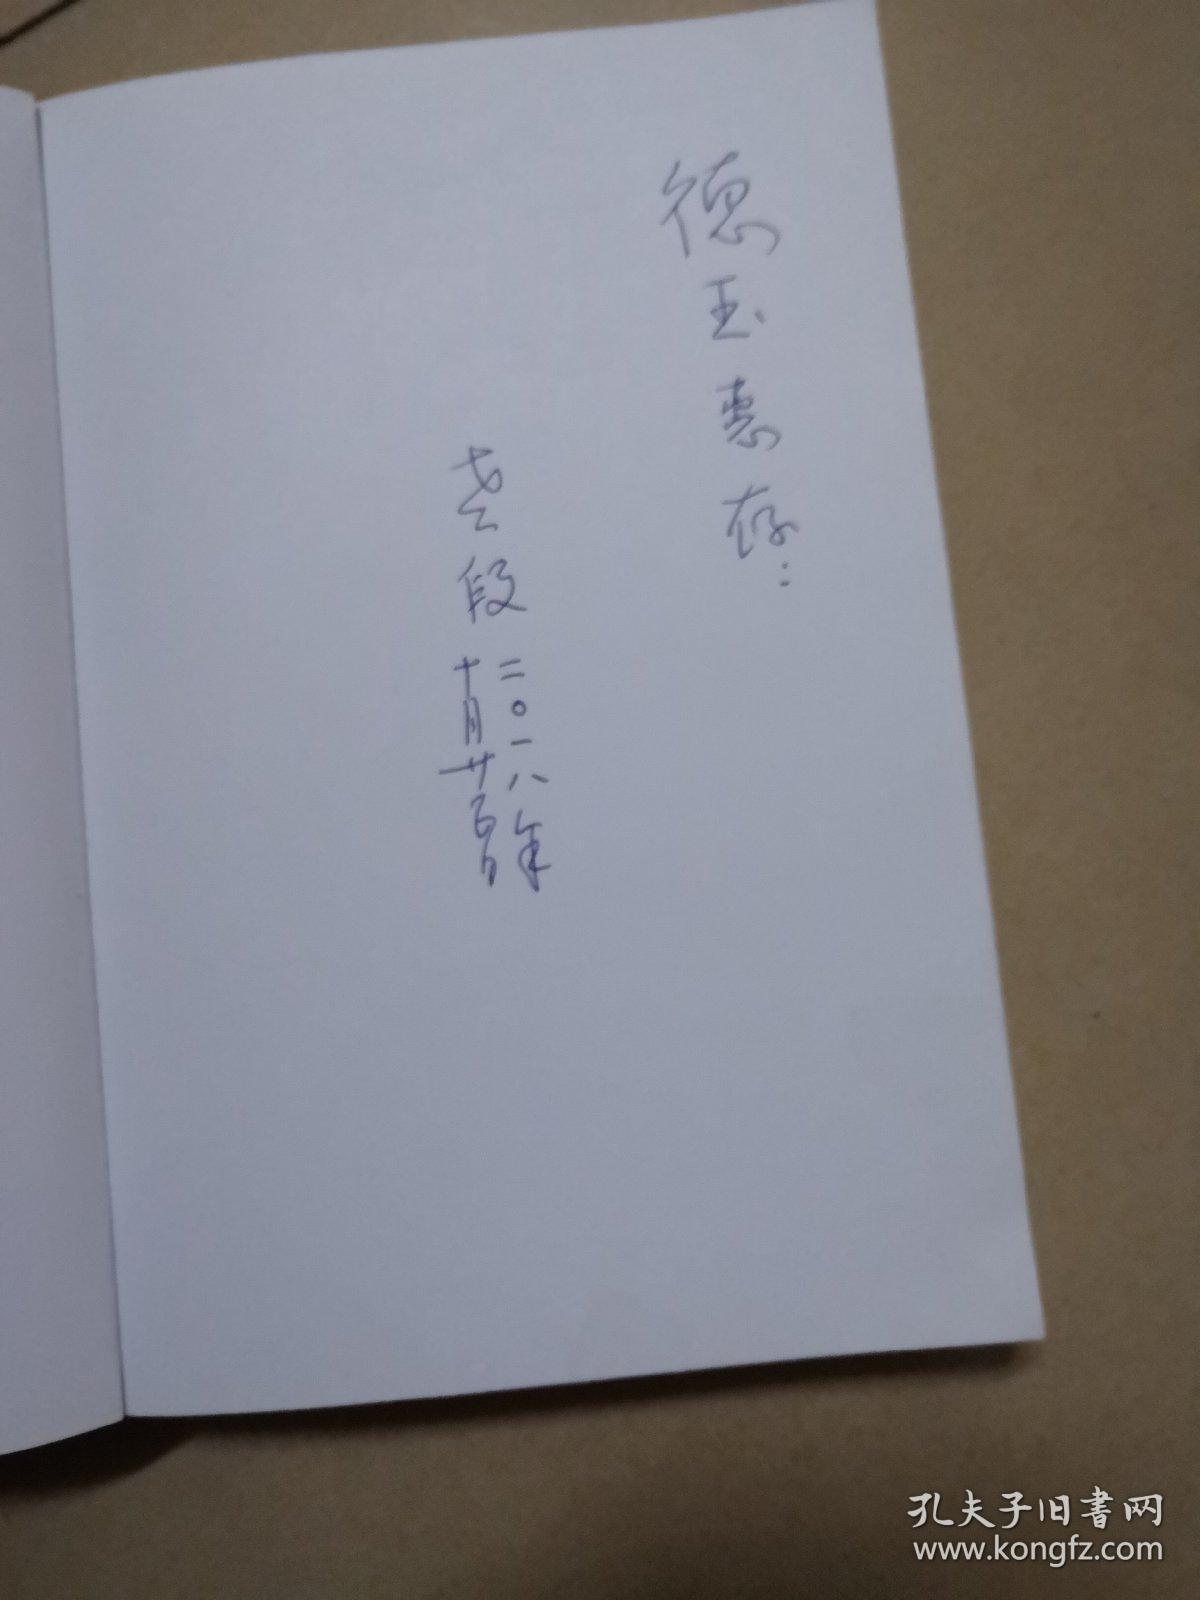 德玉惠存:
老段
二〇一八年
十月廿五日
孔夫子旧書网
www.kongfz.com